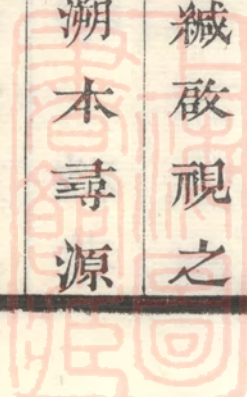 緘啟視之
溯本尋源